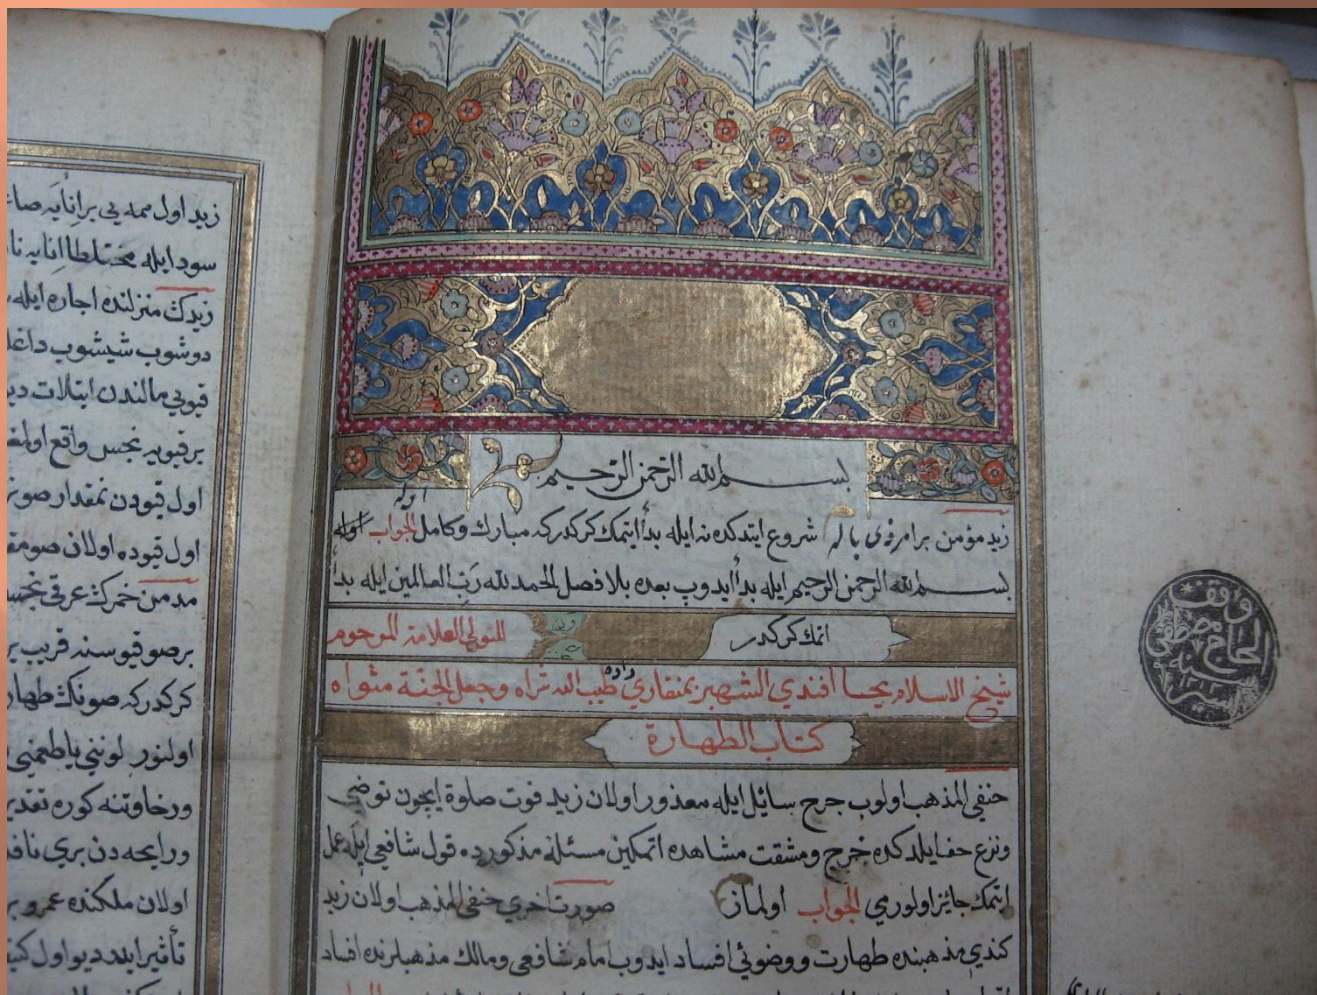 بسم الله الرحمن الرحيم
اوله
زيد مؤمن بر امر ذى بال شروع ايتدكده نه ايله بدأ ايتمك كركدر كه مبارك وكامل الجواب اوله
بسم الله الرحمن الرحيم ايله بدأ ايدوب بعده بلا فصل الحمد لله رب العالمين ايله بدأ
اتمك كركدر
للمولى العلامة المرحوم
شيخ الاسلام يحيا افندي الشهير بمنقاري داده طيب الله ثراه وجعل الجنة مثواه
كتاب الطهارة
حنفي المذهب اولوب جرح سائل ايله معذور اولان زيد فوت صلوة ايچون توضي
ونزع خف ايلدكده خرج ومشقت مشاهده اتمكين مسئلۀ مذكورده قول شافعي ايله عمل
ايتمك جائز اولورمي الجواب اولماز صورت اخري حنفي المذهب اولان زيد
كندي مذهبنده طهارت و وضوئي افساد ايدوب امام شافعي ومالك مذهبلرنده افساد
واقف
الحاج مصطفى
زيد اول ممه يي بر انايه
سود ايله مختلطا انايه
زيدك منزلنده اجاره ايله
دوشوب شيشوب
قيويي مالندن ابتلات
بر قيويه نجس واقع
اول قيودن نمقدار صو
اول قيوده اولان صو
مدمن خمرك عرقي
بر صو قيوسنه قريب بر
كركدر كه صونك
اولنور لونيني يا طعميني
ورخاوتنه كوره
ورايحه دن بري
اولان ملكنده عمرو
تأثير ايدر ديو اول